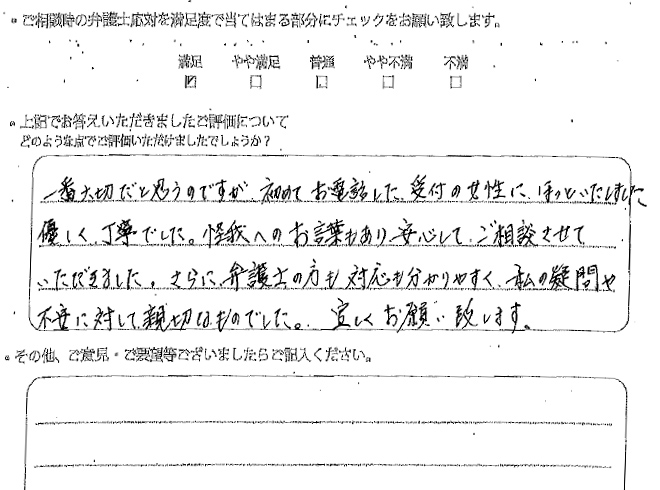 ご相談時の弁護士応対を満足度で当てはまる部分にチェックをお願い致します。
満足 やや満足 普通 やや不満 不満
上記でお答えいただきましたご評価について
どのような点でご評価いただけましたでしょうか？
一番大切だと思うのですが、初めてお電話した、受付の女性に、ほっといたしました
優しく、丁寧でした。怪我へのお言葉もあり、安心して、ご相談させて
いただきました。さらに、弁護士の方も対応も分かりやすく、私の疑問や
不安に対して親切なものでした。宜しくお願い致します。
その他、ご意見・ご要望等ございましたらご記入ください。